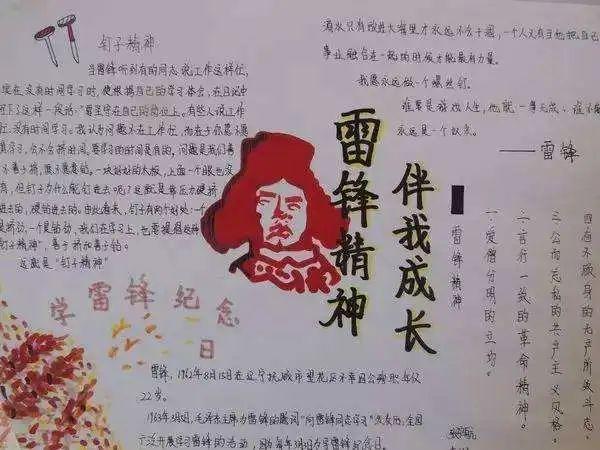 钉子精神
当雷锋听到有的同志说工作这样忙,
实在没有时间学习时,便根据自己的学习体会,在日记中
写下了这样一段话:"要坚守在自己的岗位上。有些人说工作
忙,没有时间学习。我认为问题不在工作忙,而在于你愿不愿
意学习,会不会挤时间。要学习的时间是有的,问题是我们善
不善于挤,愿不愿意钻。一块好好的木板,上面一个眼也没
有,但钉子为什么能钉进去呢?这就是靠压力硬挤
进去的,硬钻进去的。由此看来,钉子有两个好处:一个
是挤劲,一个是钻劲,我们在学习上,也要提倡这种
"钉子精神",善于挤和善于钻。
这就是"钉子精神"
滴水只有放进大海里才永远不会干涸,一个人只有当他把自己
事业融合在一起的时候才能最有力量。
我愿永远做一个螺丝钉。
谁要是游戏人生,他就一事无成、谁不能
永远是一个奴隶。
——雷锋
雷锋精神
伴我成长
雷锋精神
一、爱憎分明的立场。
二、言行一致的革命精神。
三、公而忘私的共产主义风格。
四、奋不顾身的无产阶级斗志。
学雷锋纪念
日
雷锋,1962年8月15日在辽宁抚顺市望花区不幸因公殉职年仅
22岁。
1963年3月5日,毛泽东主席为雷锋的题词"向雷锋同志学习"发表后,全国
广泛开展学习雷锋的活动,